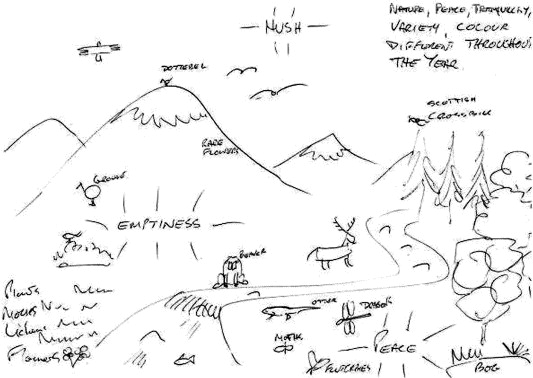 HUSH
NATURE, PEACE, TRANQUILITY,
VARIETY, COLOUR
DIFFERENT THROUGHOUT
THE YEAR
DOTTEREL
SCOTTISH
CROSSBILL
RARE
FLOWERS
GROUSE
EMPTINESS
BEAVER
Plants
Mosses
Lichens
Flowers
OTTER
MOTHS
PEACE
BOG